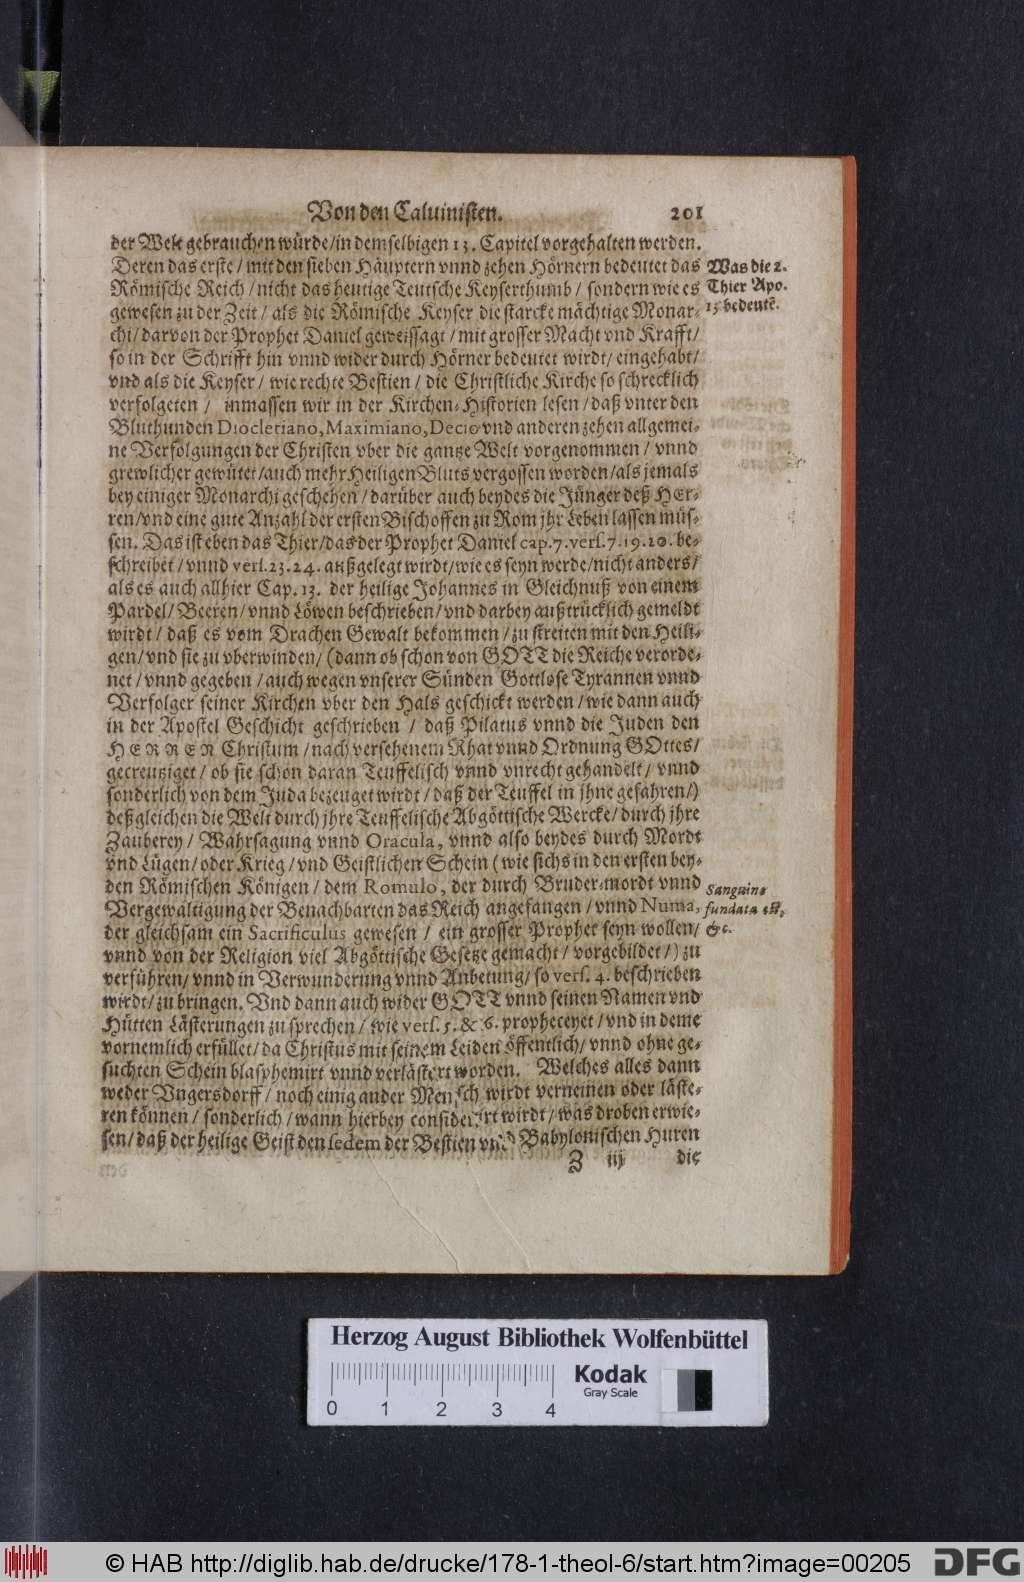 Von den Caluinisten. 201
der Welt gebrauchen würde/in demselbigen 13. Capitel vorgehalten werden.
Deren das erste/ mit den sieben Häuptern vnnd zehen Hörnern bedeutet das
Römische Reich/ nicht das heutige Teutsche Keyserthumb/ sondern wie es
gewesen zu der Zeit/ als die Römische Keyser die starcke mächtige Monar-
chi/ darvon der Prophet Daniel geweissagt/ mit grosser Macht vnd Krafft/
so in der Schrifft hin vnnd wider durch Hörner bedeutet wirdt/ eingehabt/
vnd als die Keyser/ wie rechte Bestien/ die Christliche Kirche so schrecklich
verfolgeten/ inmassen wir in der Kirchen-Historien lesen/ daß vnter den
Bluthunden Diocletiano, Maximiano, Decio vnd anderen zehen allgemei-
ne Verfolgungen der Christen vber die gantze Welt vorgenommen/ vnnd
grewlicher gewütet/auch mehr Heiligen Bluts vergossen worden/als jemals
bey einiger Monarchi geschehen/ darüber auch beydes die Jünger deß HEr-
ren/vnd eine gute Anzahl der ersten Bischoffen zu Rom jhr Leben lassen müs-
sen. Das ist eben das Thier/das der Prophet Daniel cap.7.vers.7.19.20. be-
schreibet/ vnnd vers.23.24. außgelegt wirdt/wie es seyn werde/nicht anders/
als es auch allhier Cap. 13. der heilige Johannes in Gleichnuß von einem
Pardel/ Beeren/ vnnd Löwen beschrieben/ vnd darbey außtrücklich gemeldt
wirdt/ daß es vom Drachen Gewalt bekommen/ zu streiten mit den Heili-
gen/ vnd sie zu vberwinden/ (dann ob schon von GOTT die Reiche verorde-
net/ vnnd gegeben/ auch wegen vnserer Sünden Gottlose Tyrannen vnnd
Verfolger seiner Kirchen vber den Hals geschickt werden/ wie dann auch
in der Apostel Geschicht geschrieben/ daß Pilatus vnnd die Juden den
HERREN Christum/ nach versehenem Rhat vnnd Ordnung GOttes/
gecreutziget/ ob sie schon daran Teuffelisch vnnd vnrecht gehandelt/ vnnd
sonderlich von dem Juda bezeuget wirdt/ daß der Teuffel in jhne gefahren/)
deßgleichen die Welt durch jhre Teuffelische Abgöttische Wercke/ durch jhre
Zauberey/ Wahrsagung vnnd Oracula, vnnd also beydes durch Mordt
vnd Lügen/ oder Krieg/ vnd Geistlichen Schein (wie sichs in den ersten bey-
den Römischen Königen/ dem Romulo, der durch Bruder-mordt vnnd
Vergewältigung der Benachbarten das Reich angefangen/ vnnd Numa,
der gleichsam ein Sacrificulus gewesen/ ein grosser Prophet seyn wollen/
vnnd von der Religion viel Abgöttische Gesetze gemacht/ vorgebildet/) zu
verführen/ vnnd in Verwunderung vnnd Anbetung/ so vers. 4. beschrieben
wirdt/ zu bringen. Vnd dann auch wider GOTT vnnd seinen Namen vnd
Hütten Lästerungen zu sprechen/ wie vers. 5. & 6. propheceyet/ vnd in deme
vornemlich erfüllet/ da Christus mit seinem Leiden öffentlich/ vnnd ohne ge-
suchten Schein blasphemirt vnnd verlästert worden. Welches alles dann
weder Vngersdorff/ noch einig ander Mensch wirdt verneinen oder läste-
ren können/ sonderlich/ wann hierbey considerirt wirdt/ was droben erwie-
sen/ daß der heilige Geist den sedem der Bestien vnd Babylonischen Huren
Z iij die
Was die 2.
Thier Apo.
13 bedeutē.
Sanguine
fundata est,
&c.
Herzog August Bibliothek Wolfenbüttel
0 1 2 3 4
Kodak
Gray Scale
© HAB http://diglib.hab.de/drucke/178-1-theol-6/start.htm?image=00205
DFG